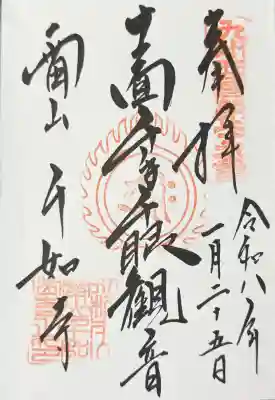 奉拝
令和八年
一月二十五日
十一面千手千眼観音
雷山 千如寺